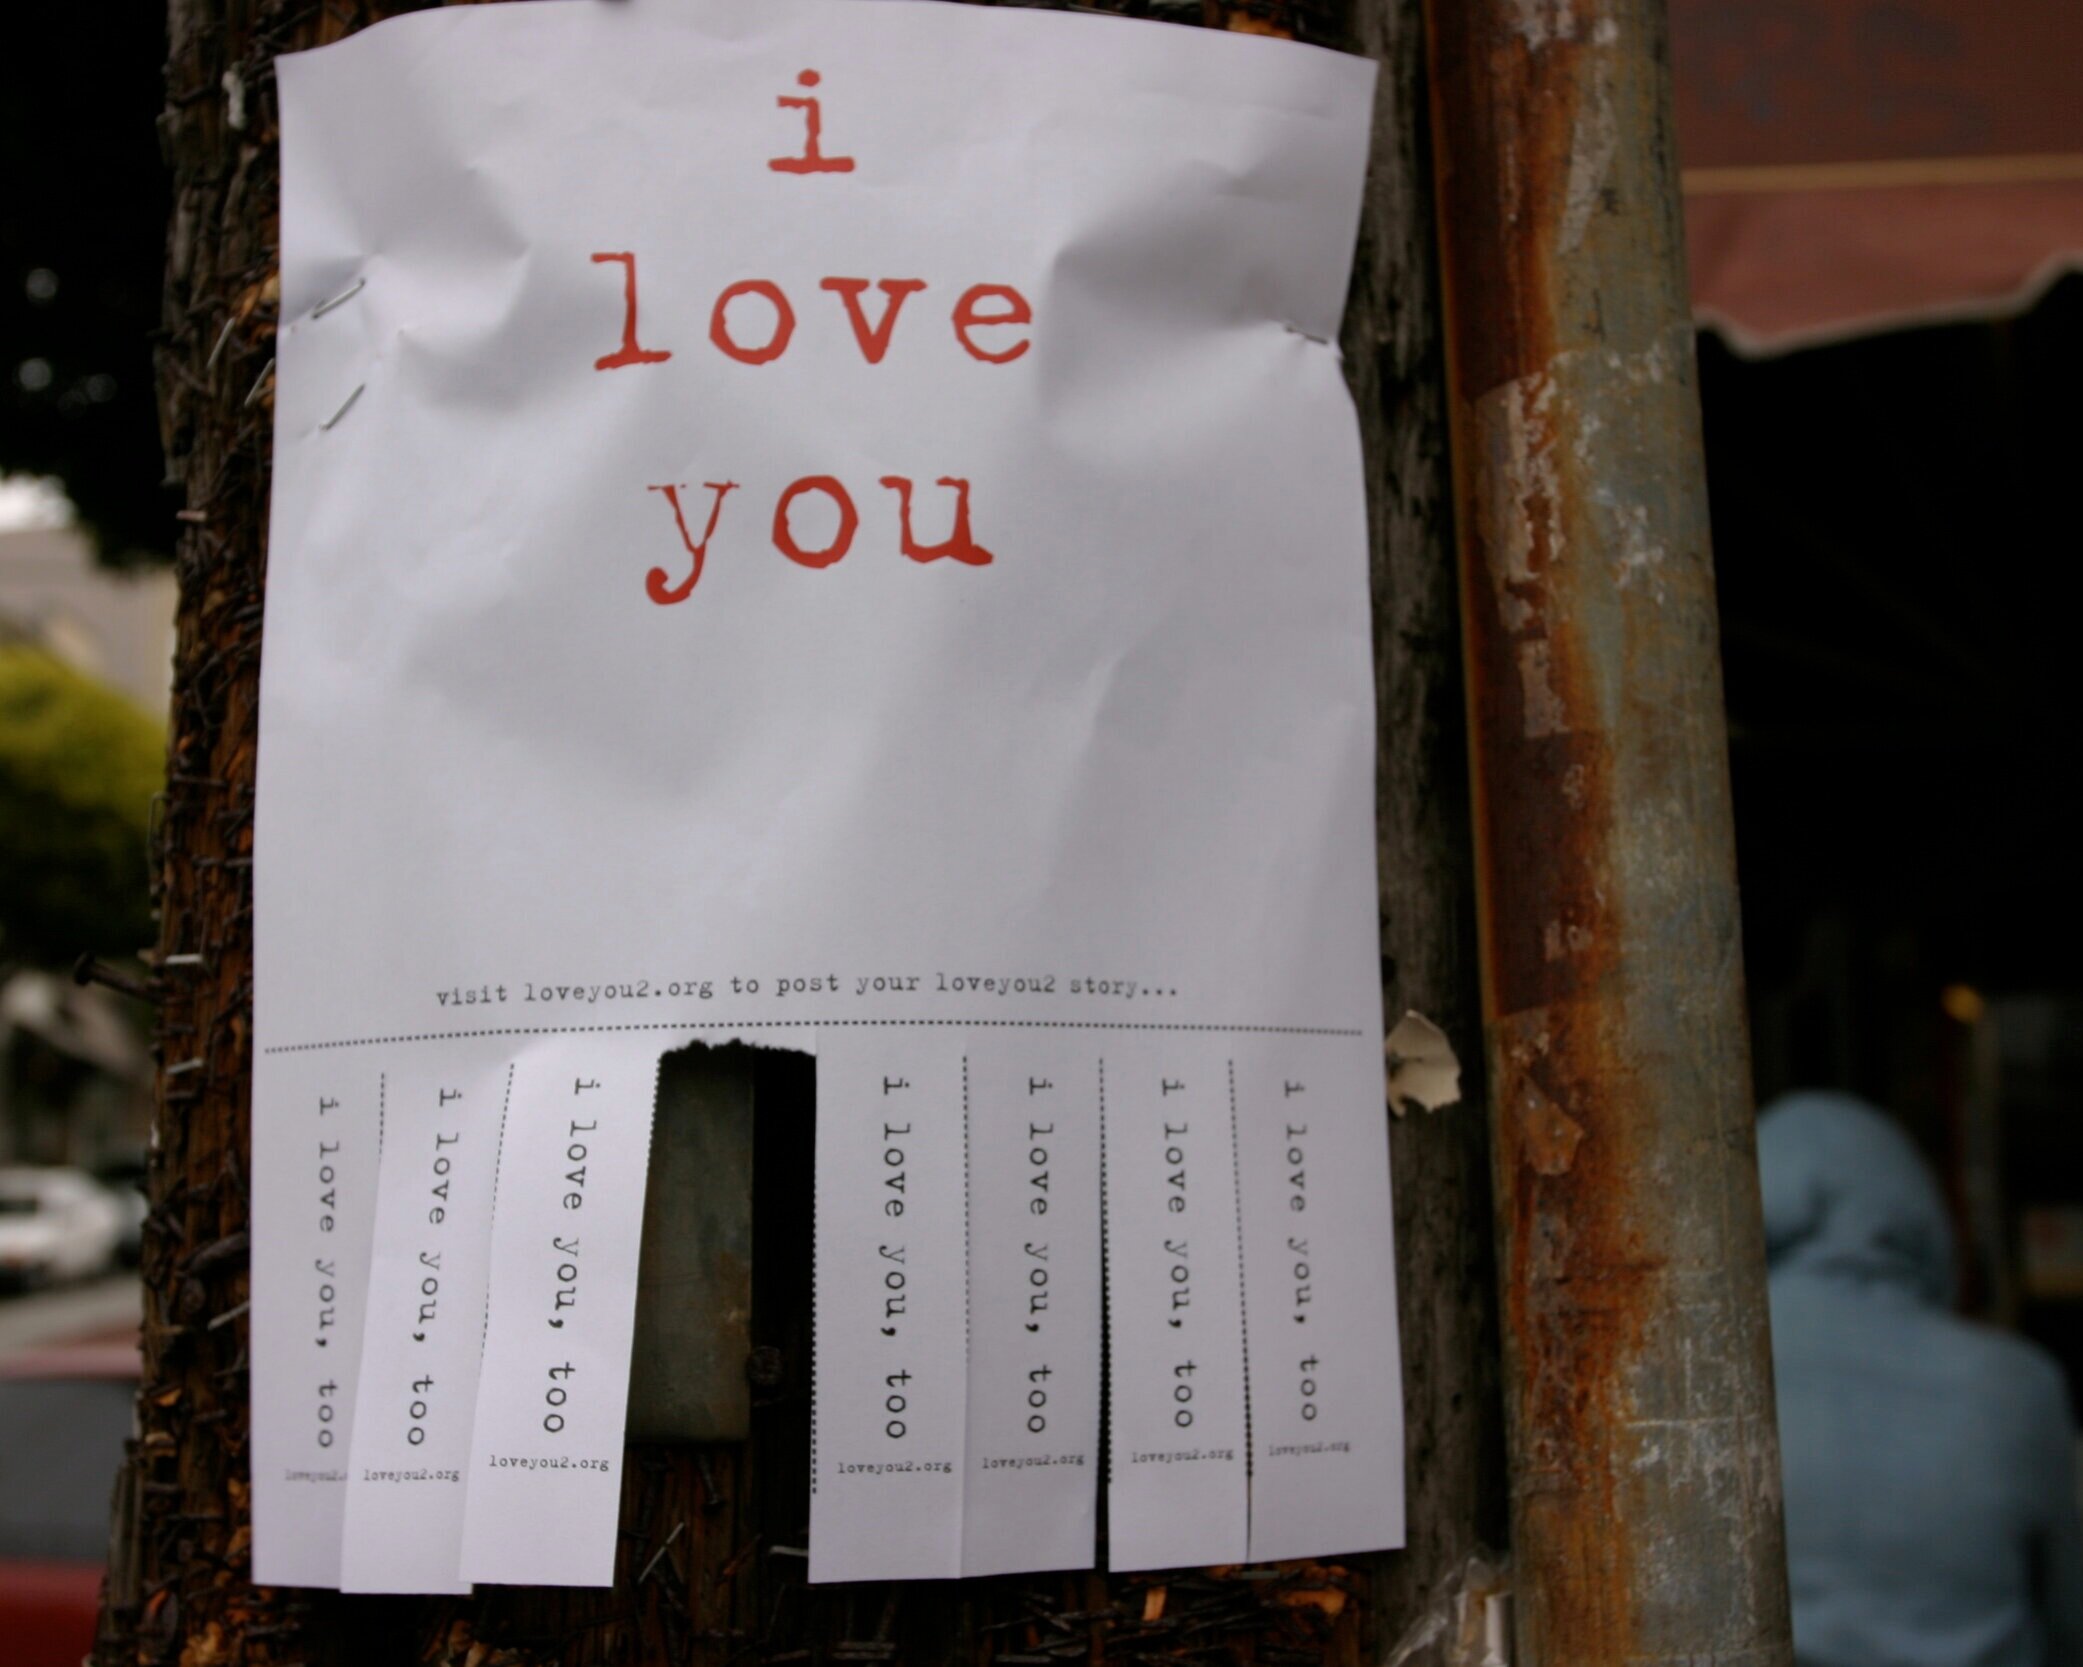 i
love
you
visit loveyou2.org to post your loveyou2 story...
i love you, too
loveyou2.o
i love you, too
loveyou2.org
i love you, too
loveyou2.org
i love you, too
loveyou2.org
i love you, too
loveyou2.org
i love you, too
loveyou2.org
i love you, too
loveyou2.org